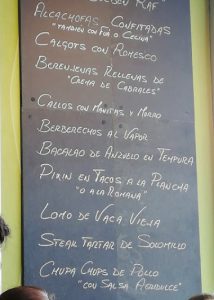 RAF"
ALCACHOFAS CONFITADAS
"TAMBIÉN CON FOIE O CECINA"
CALÇOTS CON ROMESCO
BERENJENAS RELLENAS DE
"CREMA DE CABRALES"
CALLOS CON MANITAS Y MORRO
BERBERECHOS AL VAPOR
BACALAO DE ANZUELO EN TEMPURA
PIXIN EN TACOS A LA PLANCHA
"O A LA ROMANA"
LOMO DE VACA VIEJA
STEAK TARTAR DE SOLOMILLO
CHUPA CHOPS DE POLLO
"CON SALSA AGRIDULCE"